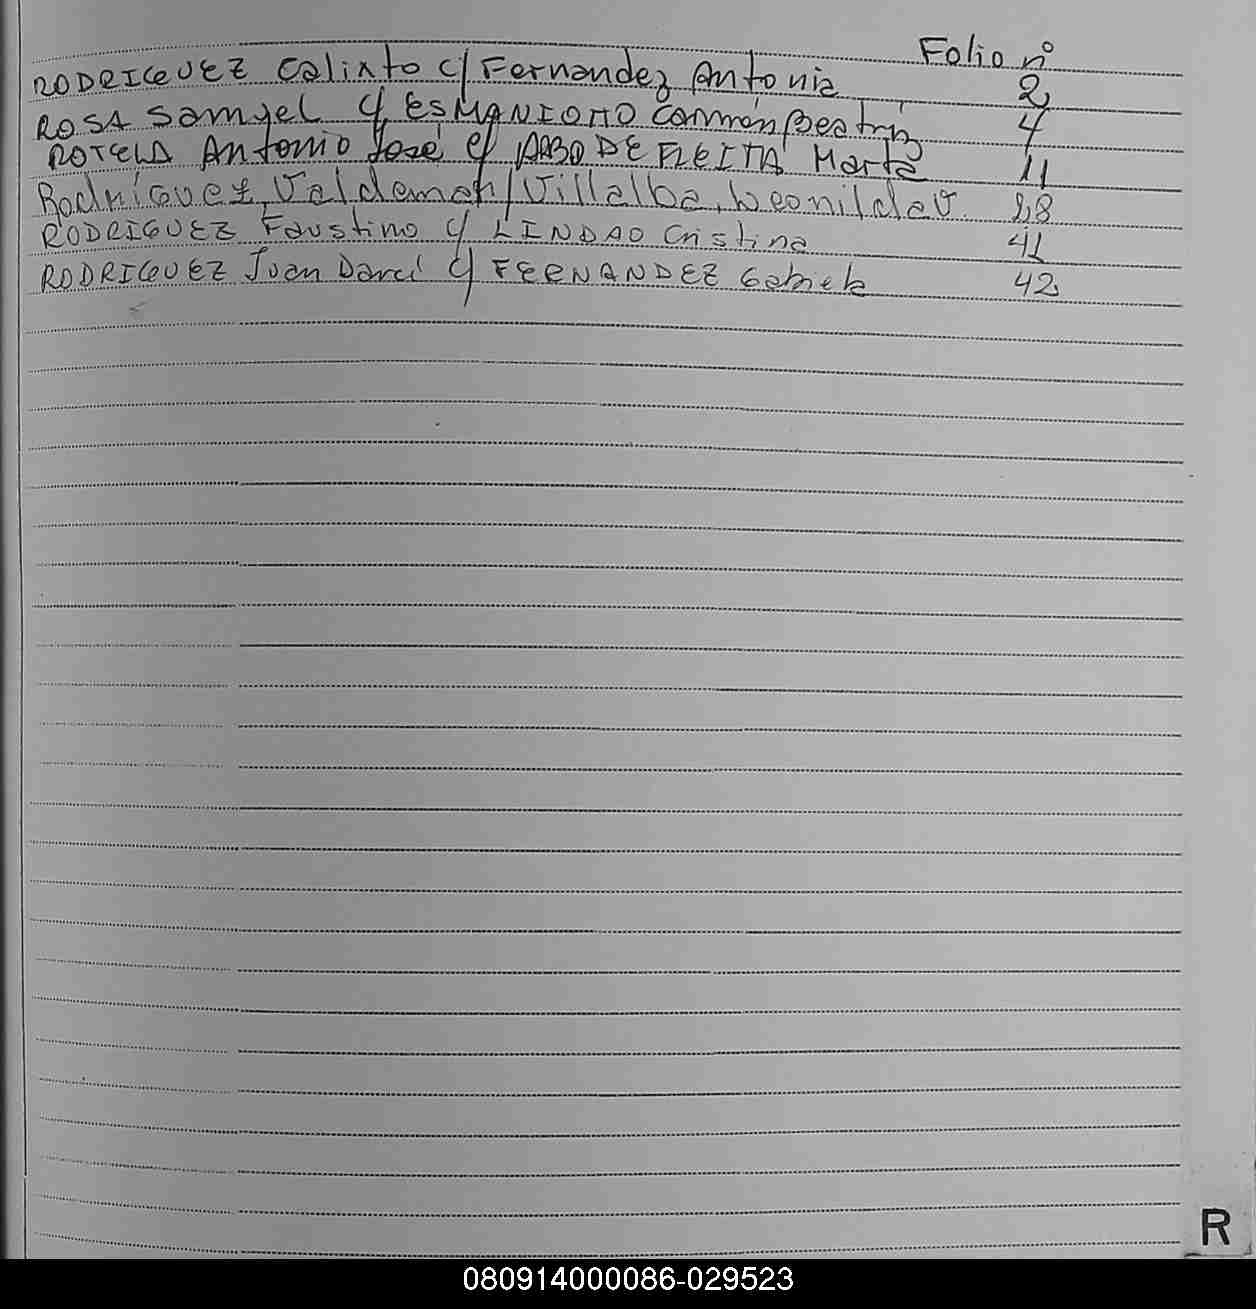 Folio nº
RODRIGUEZ Calixto c/ Fernandez Antonia 2
ROSA Samuel c/ ESMANIOTTO Carmen Beatriz 4
ROTELA Antonio José c/ DE FLEITA Marta 11
Rodríguez, Valdemar / Villalba, Leonilda V. 28
RODRIGUEZ Faustino c/ LINDAO Cristina 41
RODRIGUEZ Juan Darci c/ FERNANDEZ Gabriela 42
R
080914000086-029523